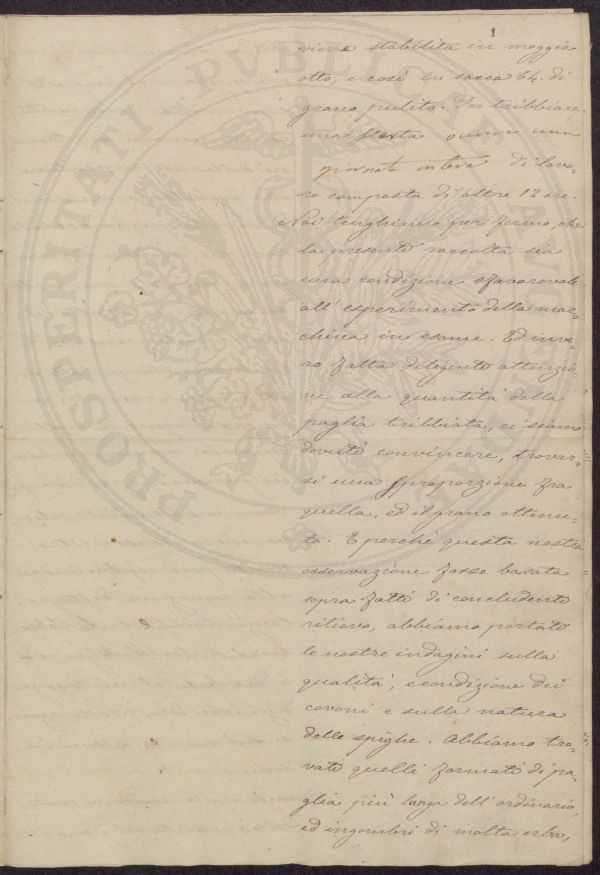 1
viene stabilita in moggia
otto, e così in sacca 64. di
grano pulito. Per tribbiare
una
giornata intera di lavo-
ro composta di oltre 12 ore.
Noi tenghiamo per fermo, che
la presente raccolta sia
una condizione sfavorevole
all'esperimento della mac-
china in esame. Ed inve-
ro fatta diligente attenzio-
ne alla quantità della
paglia tribbiata, ci siamo
dovuti convincere, trovar-
si una sproporzione fra
quella, ed il grano ottenu-
to. E perché questa nostra
osservazione fosse basata
sopra fatti di concludente
rilievo, abbiamo portate
le nostre indagini sulla
qualità, e condizione dei
covoni e sulla natura
delle spighe. Abbiamo tro-
vati quelli formati di pa-
glia più lunga dell'ordinario,
ed ingombri di molta erba,
PROSPERITATI PVBLICAE